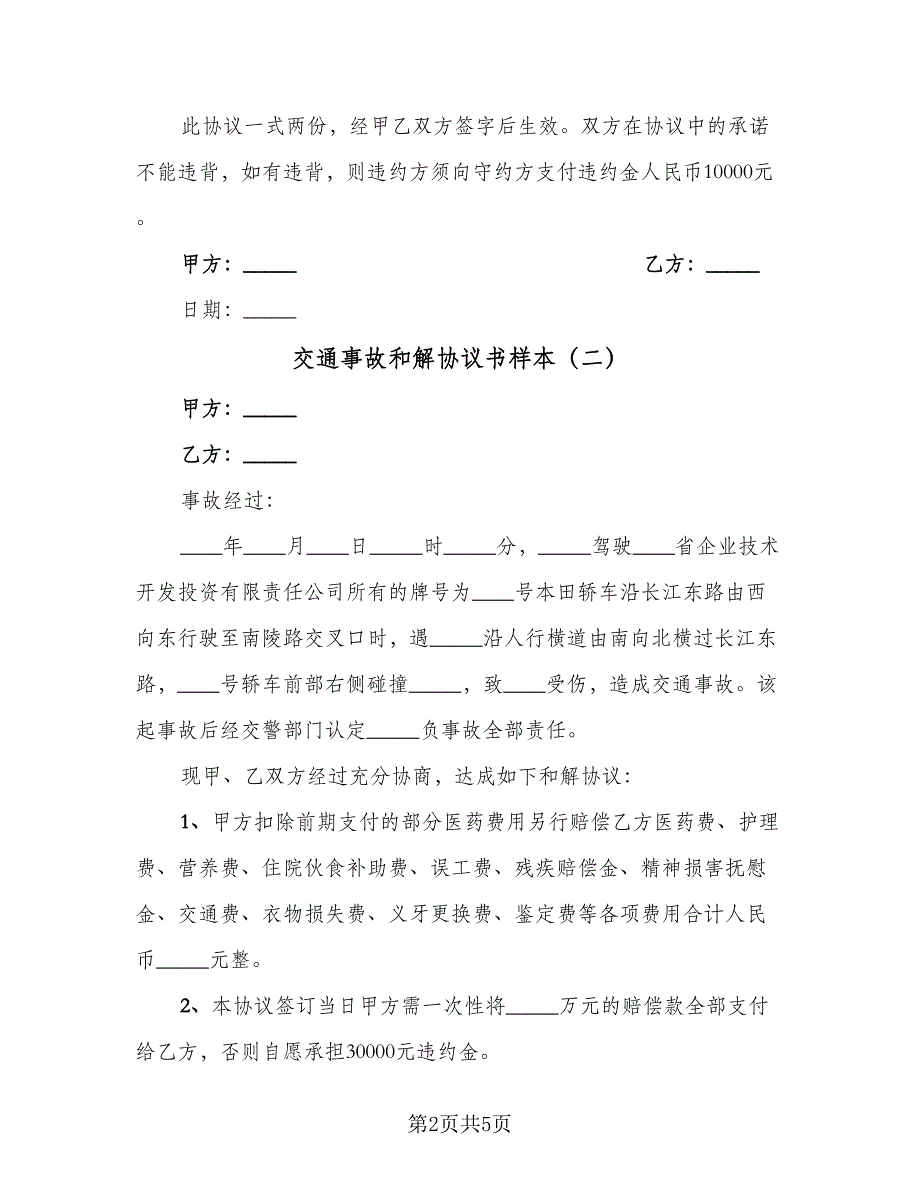 此协议一式两份，经甲乙双方签字后生效。双方在协议中的承诺
不能违背，如有违背，则违约方须向守约方支付违约金人民币10000元
。
甲方：_____ 乙方：_____
日期：_____
交通事故和解协议书样本（二）
甲方：_____
乙方：_____
事故经过：
____年____月____日_____时_____分，_____驾驶____省企业技术
开发投资有限责任公司所有的牌号为____号本田轿车沿长江东路由西
向东行驶至南陵路交叉口时，遇_____沿人行横道由南向北横过长江东
路，____号轿车前部右侧碰撞_____，致____受伤，造成交通事故。该
起事故后经交警部门认定_____负事故全部责任。
现甲、乙双方经过充分协商，达成如下和解协议：
1、甲方扣除前期支付的部分医药费用另行赔偿乙方医药费、护理
费、营养费、住院伙食补助费、误工费、残疾赔偿金、精神损害抚慰
金、交通费、衣物损失费、义牙更换费、鉴定费等各项费用合计人民
币_____元整。
2、本协议签订当日甲方需一次性将_____万元的赔偿款全部支付
给乙方，否则自愿承担30000元违约金。
第2页共5页